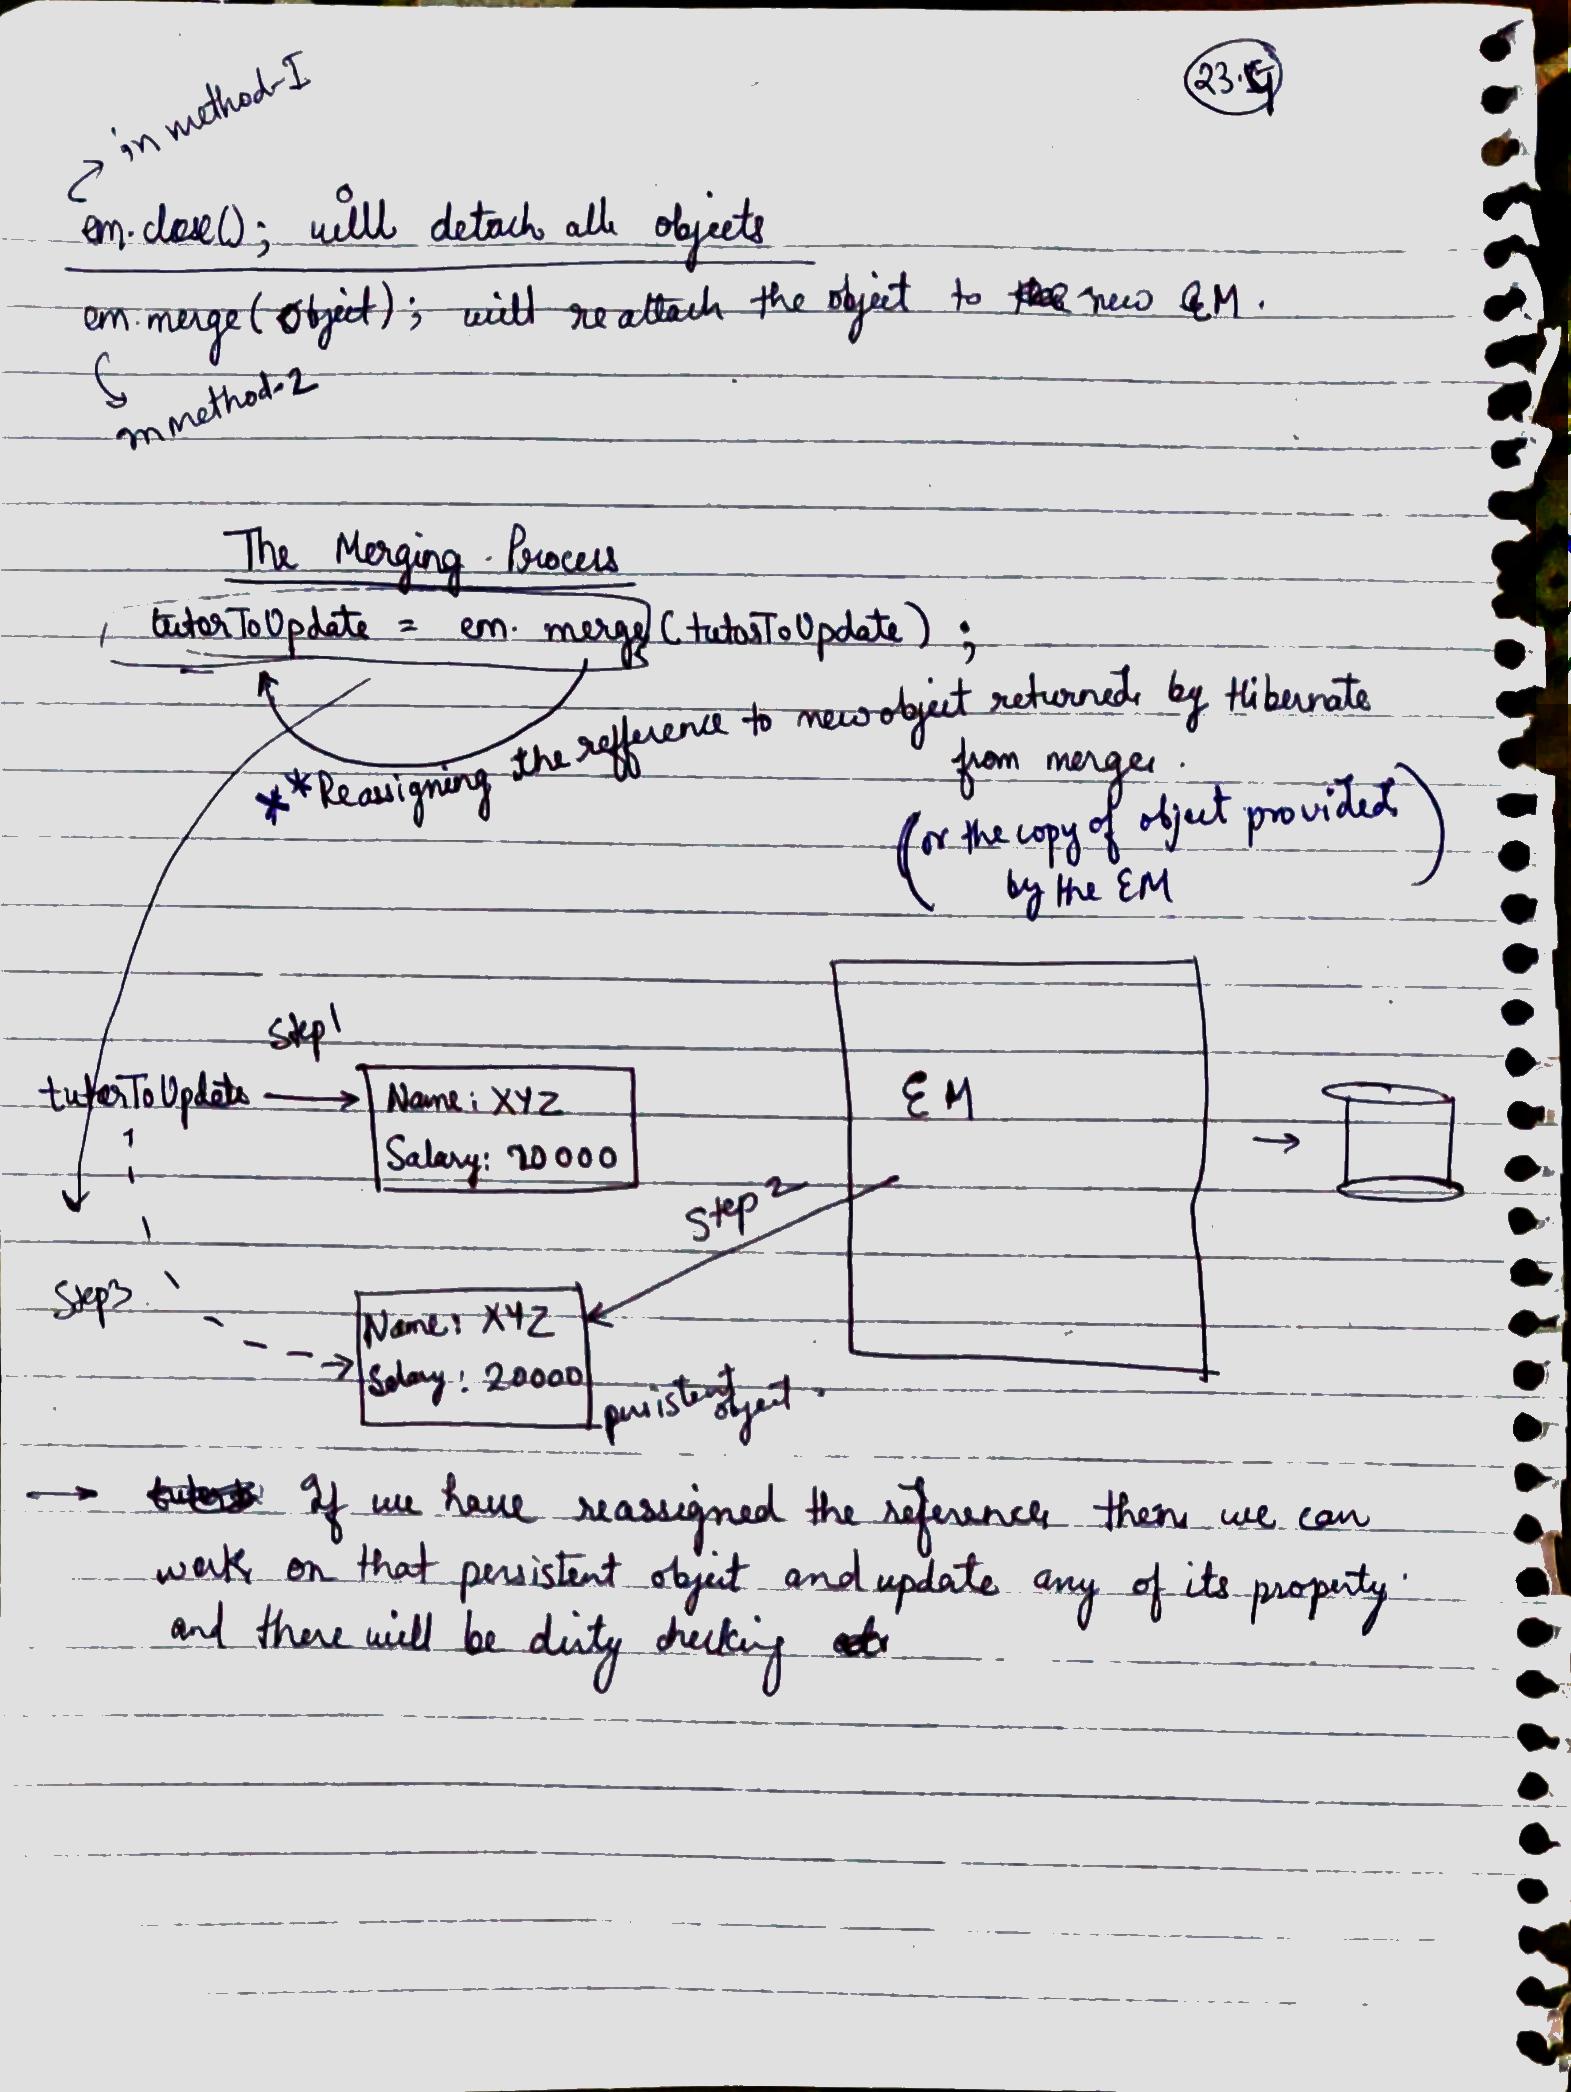 in method-I
em.close(); will detach all objects
em.merge(Object); will reattach the object to new EM.
in method-2
The Merging Process
tutorToUpdate = em. merge(tutorToUpdate);
**Reassigning the refference to new object returned by Hibernate
from merge.
(or the copy of object provided
by the EM)
Step1
tutorToUpdate → Name: XYZ
Salary: 20000
EM
Step 2
Step3
Name: XYZ
Salary: 20000
persistent object.
→ If we have reassigned the reference then we can
work on that persistent object and update any of its property.
and there will be dirty checking